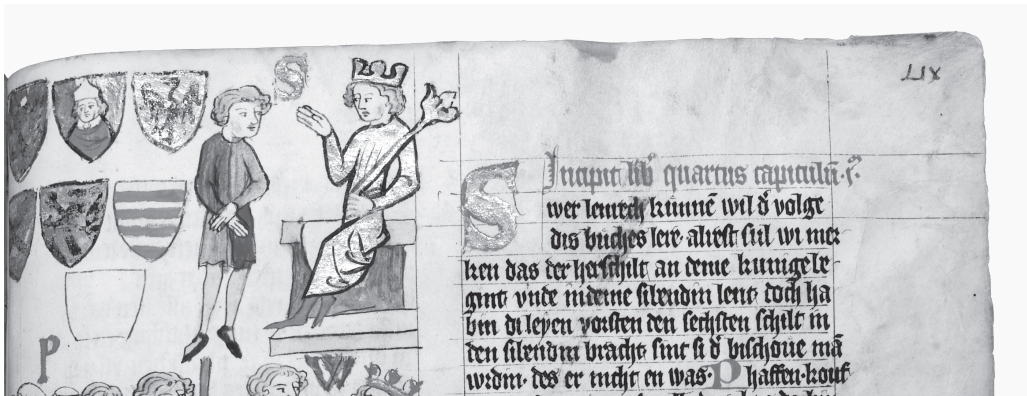 LIX
S
Incipit lib' quartus capitulū · i ·
Swer lenrech kunnē wil d' volge
dis buches lere · alrest sul wi mer
ken das der herschilt an deme kunige be
gint vnde in deme sibendin lent doch ha
bin di leyen vorsten den sechsten schilt in
den sibendin bracht sint si d' bischoue mā
wrdin · des er nicht en was · Phaffen · kouf
P
W